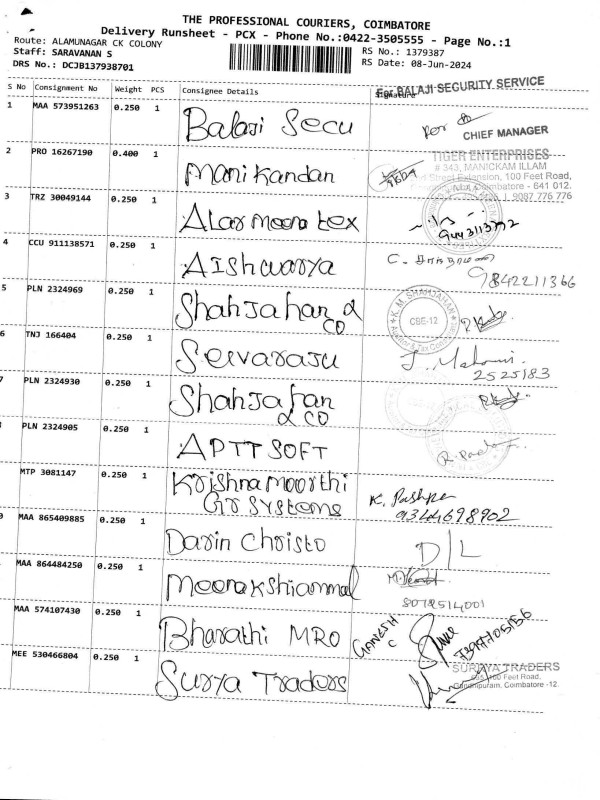 THE PROFESSIONAL COURIERS, COIMBATORE
Delivery Runsheet - PCX - Phone No.:0422-3505555 - Page No.:1
Route: ALAMUNAGAR CK COLONY
Staff: SARAVANAN S
DRS No.: DCJB137938701
RS No.: 1379387
RS Date: 08-Jun-2024
S No Consignment No Weight PCS Consignee Details Signature
For BALAJI SECURITY SERVICE
1 MAA 573951263 0.250 1 Balaji Secu
CHIEF MANAGER
2 PRO 16267190 0.400 1 Manikandan
TIGER ENTERPRISES
# 343, MANICKAM ILLAM
Extension, 100 Feet Road,
Coimbatore - 641 012.
9087 776 776
3 TRZ 30049144 0.250 1 Alarmoora tex
4 CCU 911138571 0.250 1 Aishwarya
9842211366
5 PLN 2324969 0.250 1 Shahjahan &
CO
K. M. SHAHJAHAN
CBE-12
Auditor & Tax Consultant
6 TNJ 166404 0.250 1 Selvaraju
2525183
7 PLN 2324930 0.250 1 Shahjahan
& CO
PLN 2324905 0.250 1 APTT SOFT
MTP 3081147 0.250 1 Krishnamoorthi
GR Systems
K. Pushpa
9344698902
MAA 865409885 0.250 1 Darin Christo
D/L
MAA 864484250 0.250 1 Meenakshiammal
MAA 574107430 0.250 1 Bharathi MRO
GANESH
C
MEE 530466804 0.250 1 Surya Traders
SURYA TRADERS
Feet Road,
Gandhipuram, Coimbatore -12.